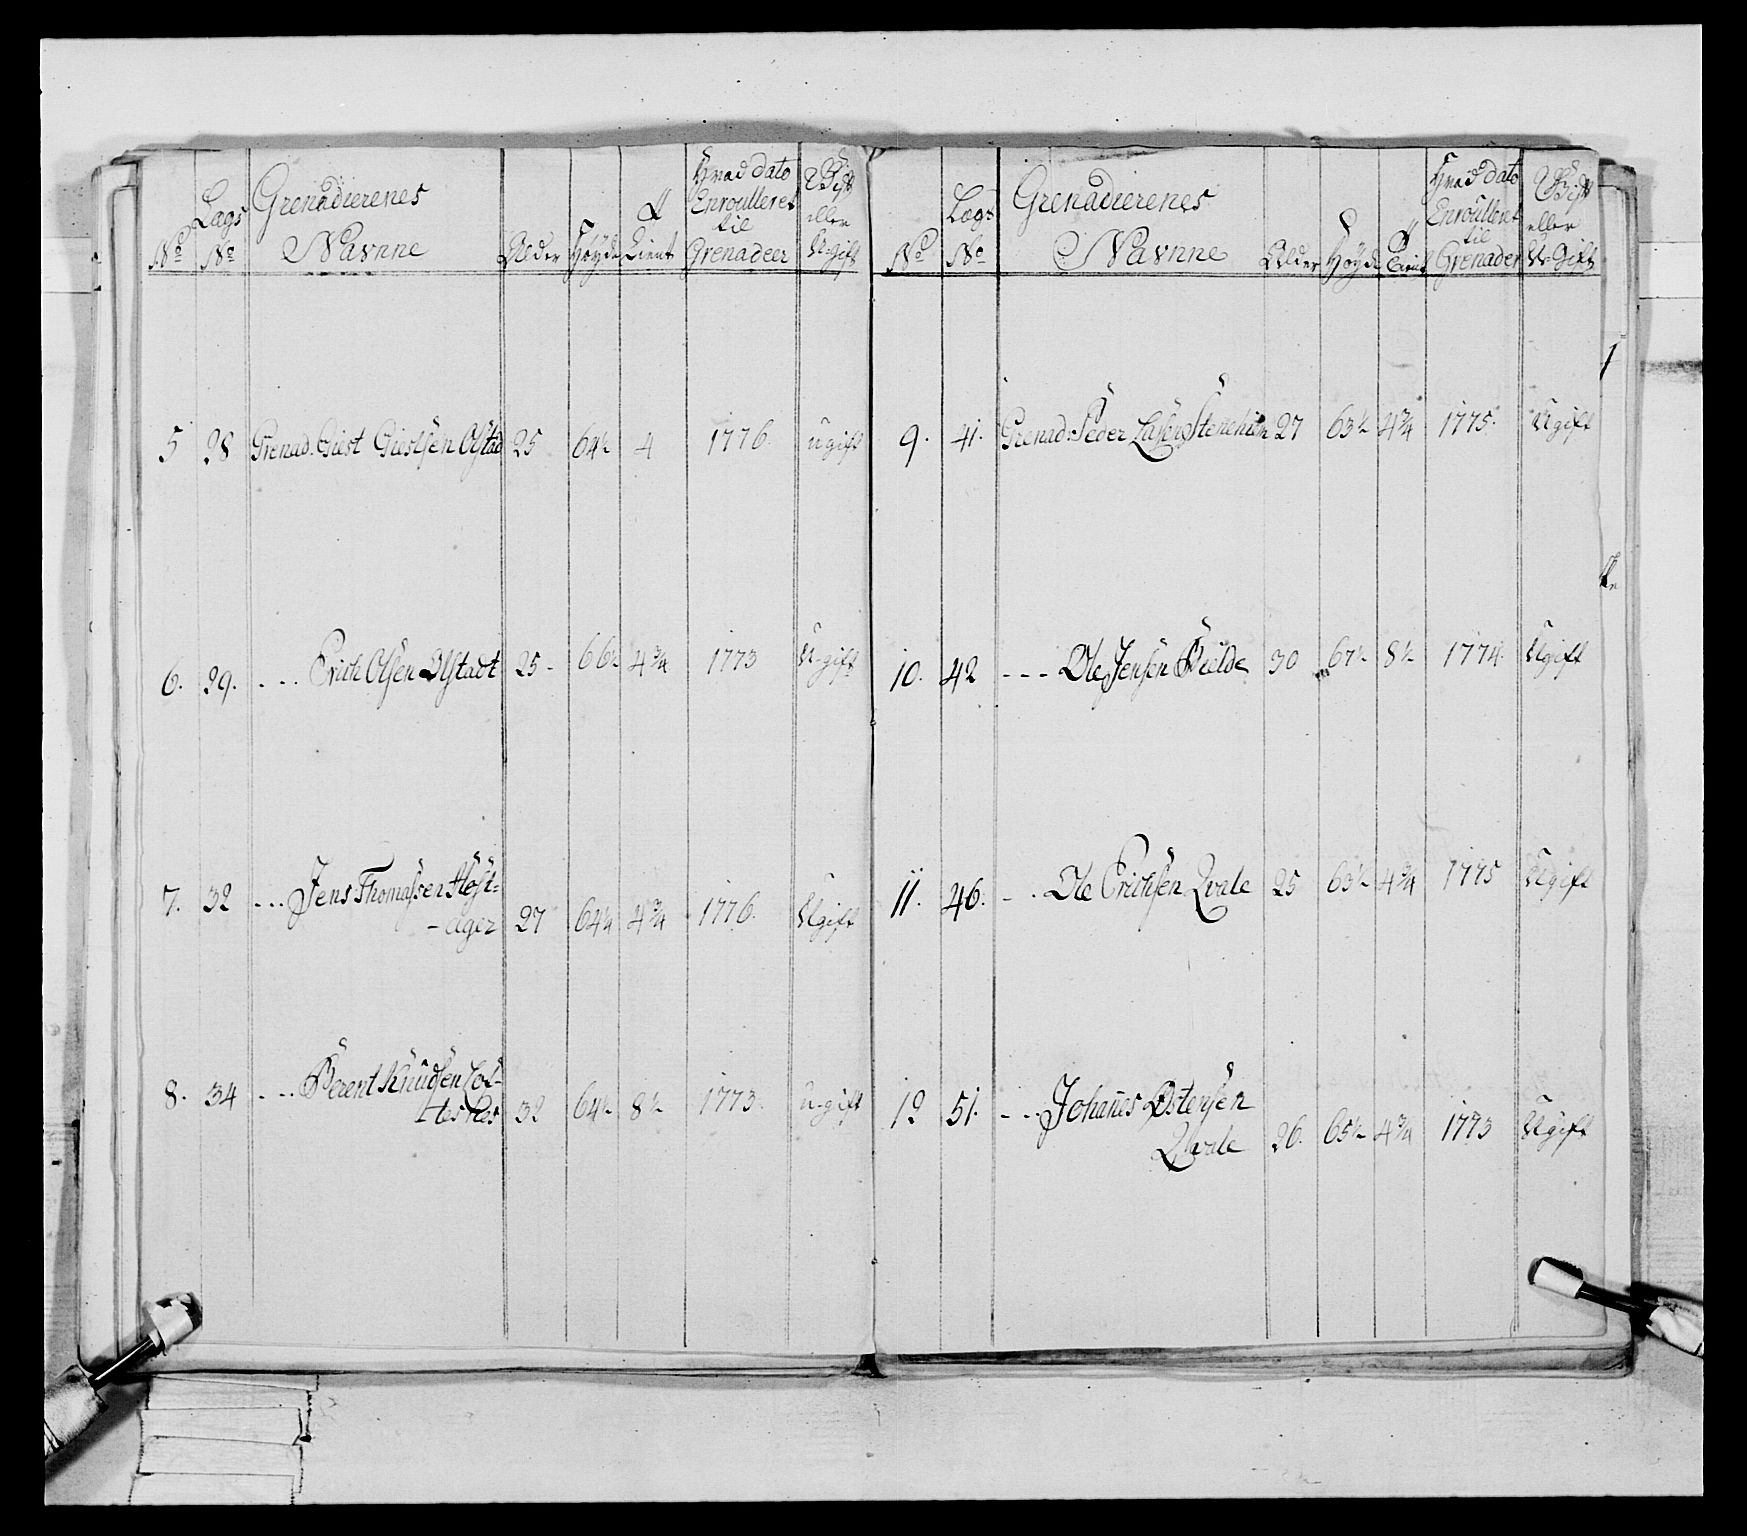 No Lags No Grenadierenes Navnne Alder Høyde Tient Hvad dato Enroulleret til Grenadeer Gift eller U-gift
5 28 Grenad. Giest Giestsen Olstad 25 64½ 4 1776. ugift
6. 29. --- Erich Olsen Olstadt 25- 66½ 4¾ 1773 U-gift
7. 32 --- Jens Thomassen Høst=
-ager 27 64¼ 4¾ 1776. Ugift
8. 34 --- Berent Knudsen
32 64½ 8½ 1773. U-gift
No Lags No Grenadierenes Navnne Alder Høyde Tient Hvad dato Enroulleret til Grenader Gift eller U-Gift
9. 41. Grenad: Peder 27 63½ 4¾ 1775. Ugift
10. 42 --- Ole Jensen Kielde 30 67½ 8½ 1774. Ugift
11. 46. -- Ole Erichsen Qvale 25 63½ 4¾ 1775 Ugift
12 51. --- Johannes Østensen
Qvale 26. 65½ 4¾ 1773 Ugift